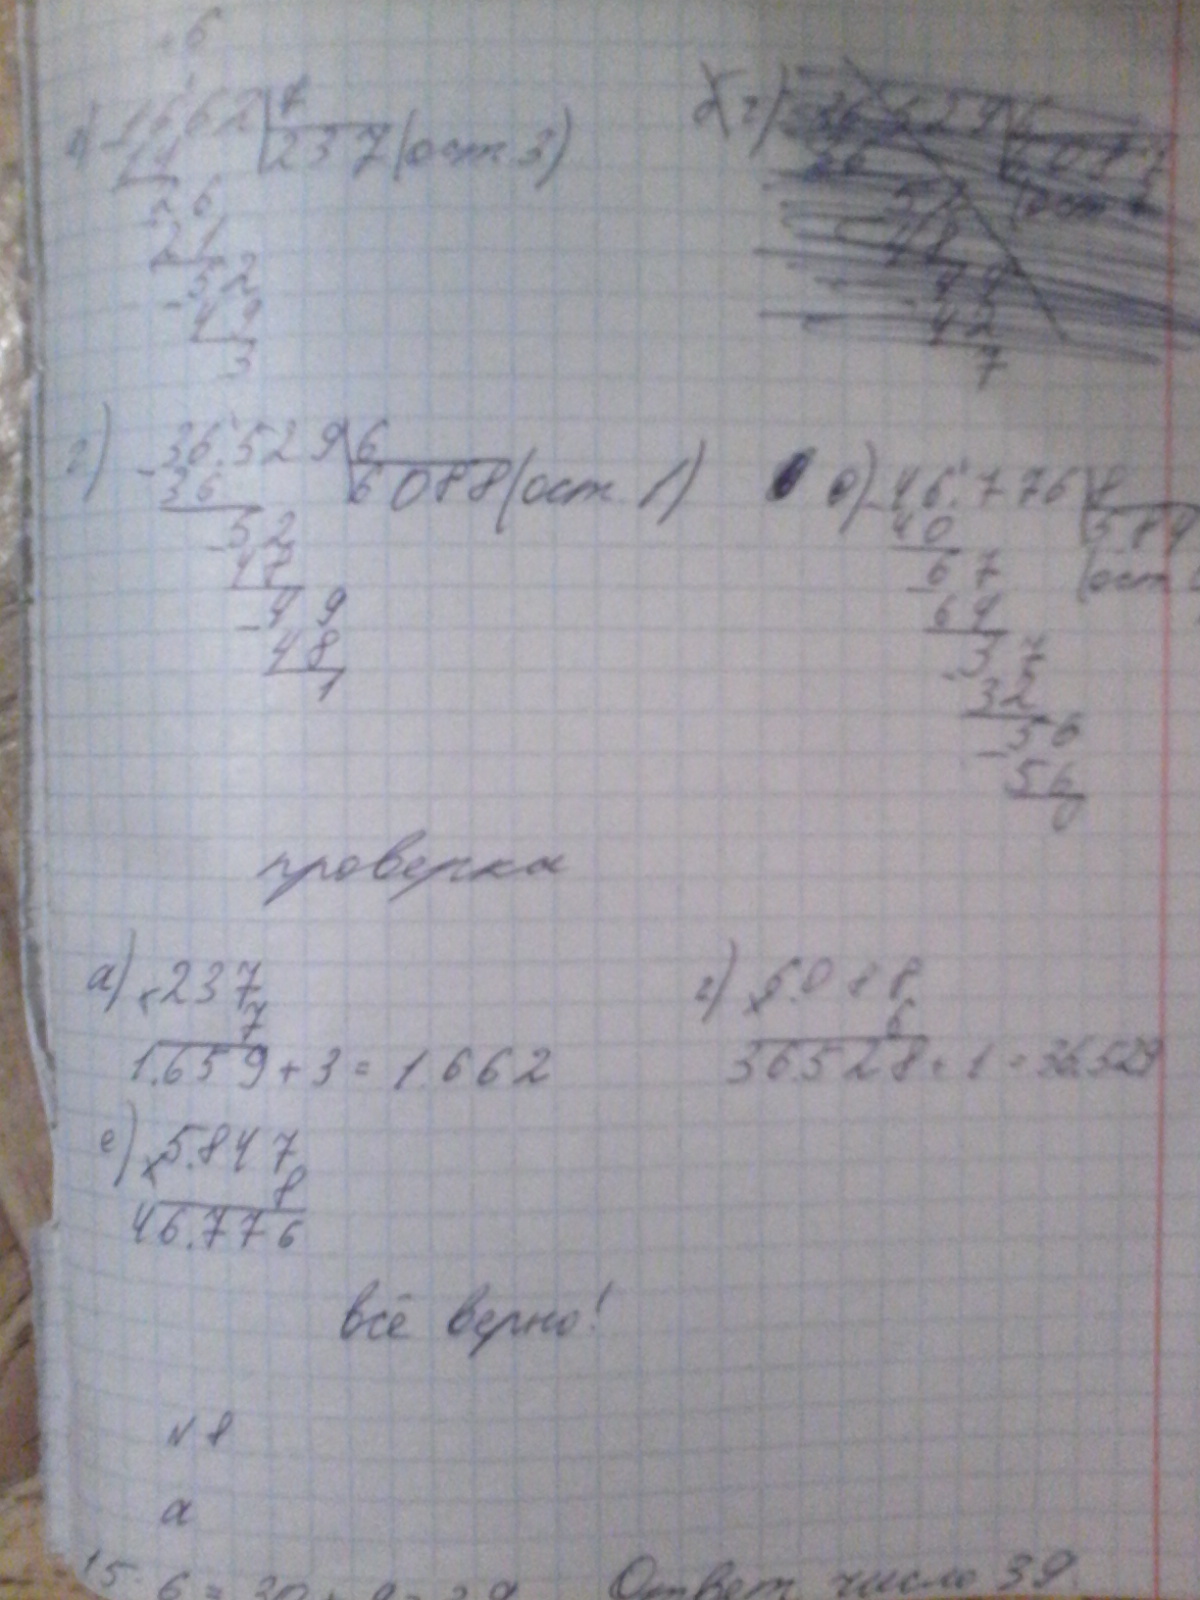 6
1662 7
14 237 (ост 3)
26
21
52
49
3
г) 36.529 6
36 6088 (ост 1)
52
47
49
48
1
е) 46.776 8
40 584
67 (ост
64
37
32
56
56
0
проверка
а) × 237
7
1.659 + 3 = 1.662
г) × 6.088
6
36.528 + 1 = 36.529
е) × 5.847
8
46.776
всё верно!
N 8
а
Ответ число 39